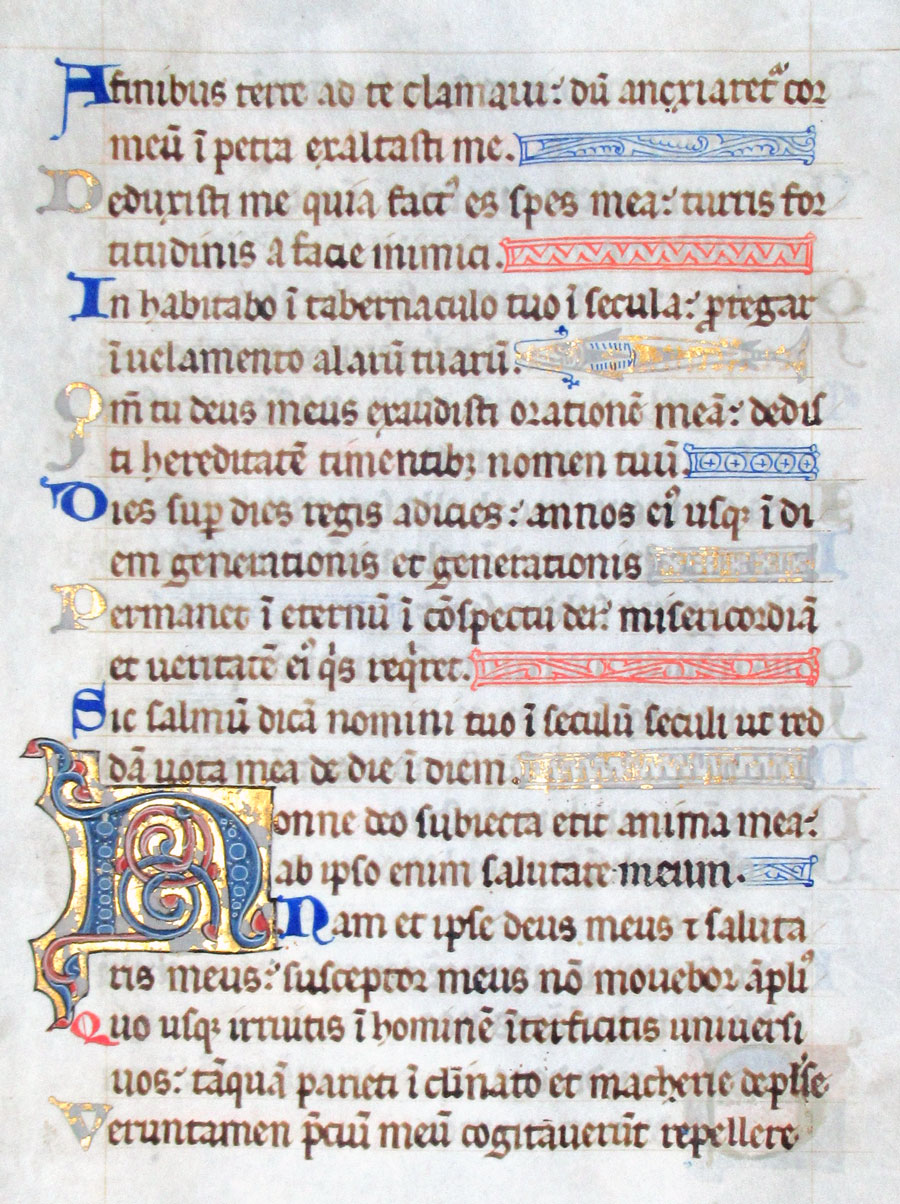 A finibus terre ad te clamaui: dũ anxiaretᷓ cor
meũ ĩ petra exaltasti me.
Deduxisti me quia fact᾿ es spes mea: turris for
titudinis a facie inimici.
In habitabo ĩ tabernaculo tuo ĩ secula: ꝓtegar
ĩ uelamento alarũ tuarũ.
Qm̃ tu deus meus exaudisti orationẽ meã: dedis
ti hereditatẽ timentibꝫ nomen tuũ.
Dies suꝑ dies regis adicies: annos ei᾿ usqꝫ ĩ di
em generationis et generationis
Permanet ĩ eternũ ĩ cõspectu dei: misericordiã
et ueritatẽ ei᾿ qͥs reqͥret.
Sic salmũ dicã nomini tuo ĩ seculũ seculi ut red
dã uota mea de die ĩ diem.
Nonne deo subiecta erit anima mea:
ab ipso enim salutare meum.
Nam et ipse deus meus ⁊ saluta
ris meus: susceptor meus nõ mouebor ãpli᾿
Quo usqꝫ irruitis ĩ hominẽ ĩterficitis uniuersi
uos: tãquã parieti ĩ clinato et macherie depl̃se
Veruntamen p̃ciũ meũ cogitauerũt repellere